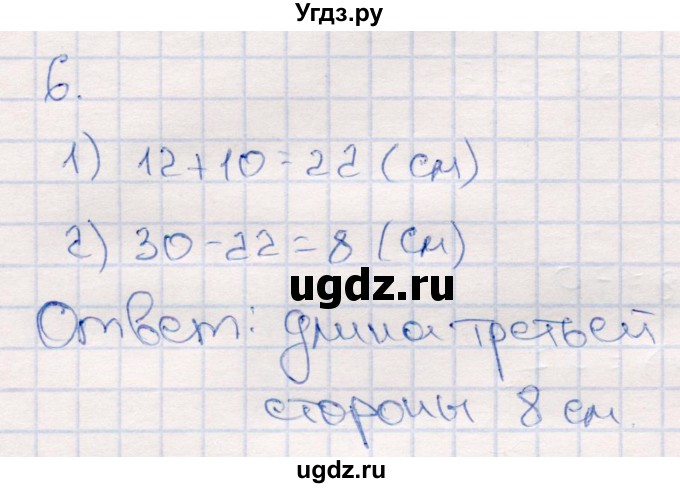 Угдз.ру
6.
1) 12+10=22 (см)
2) 30-22=8 (см)
ugdz.ru
Ответ: длина третьей
стороны 8 см.
ugdz.ru